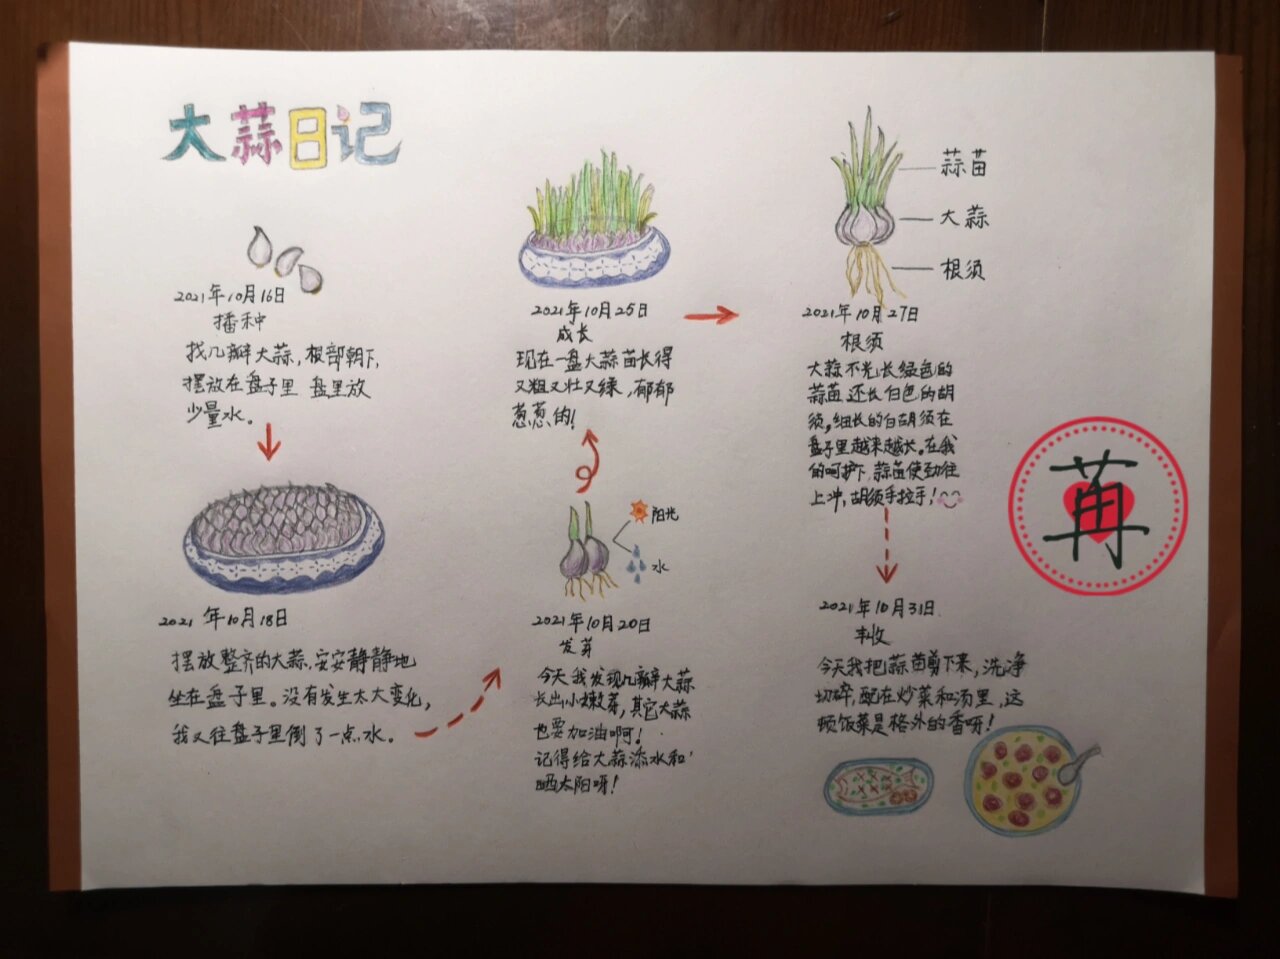 大蒜日记
2021年10月16日
播种
找几瓣大蒜,根部朝下,
摆放在盘子里 盘里放
少量水。
2021 年10月18日
摆放整齐的大蒜,安安静静地
坐在盘子里。没有发生太大变化,
我又往盘子里倒了一点水。
阳光
水
2021年10月20日
发芽
今天我发现几瓣大蒜
长出小嫩芽,其它大蒜
也要加油啊!
记得给大蒜添水和
晒太阳呀!
2021年10月25日
成长
现在一盘大蒜苗长得
又粗又壮又绿,郁郁
葱葱的!
蒜苗
大蒜
根须
2021年10月27日
根须
大蒜不光长绿色的
蒜苗 还长白色的胡
须,细长的白胡须在
盘子里越来越长。在我
的呵护下,蒜苗使劲往
上冲,胡须手拉手!
2021年10月31日
丰收
今天我把蒜苗剪下来,洗净
切碎,配在炒菜和汤里,这
顿饭菜是格外的香呀!
苒